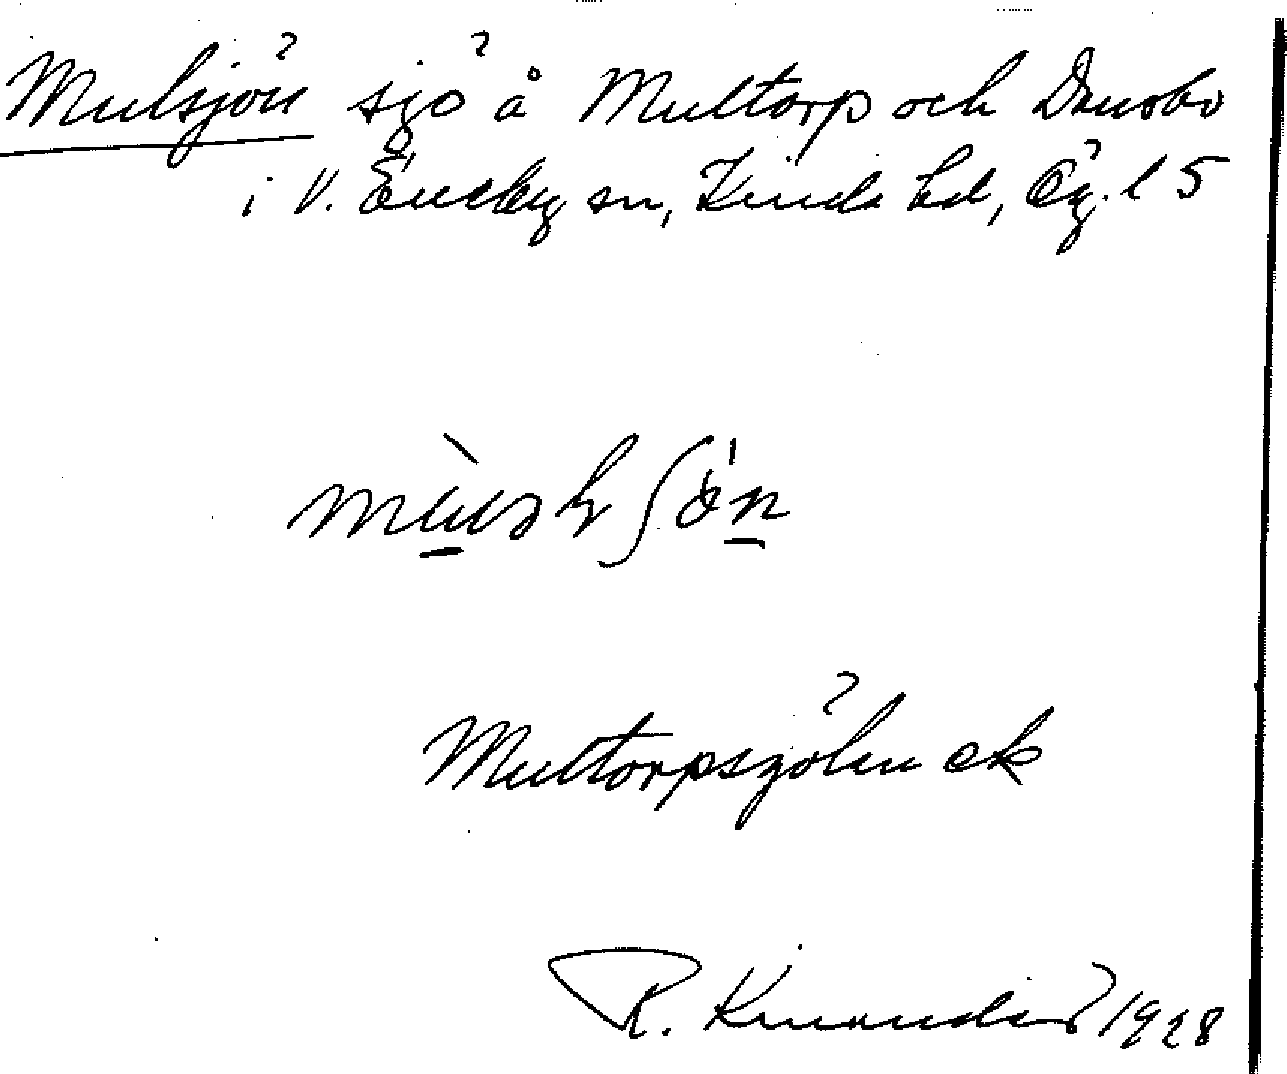 Mulsjön sjö å Multorp och Drusbo
i V. Eneby sn, Kinda hd, Ög. l 5
Multorpsjön ek
R. Kinander 1928